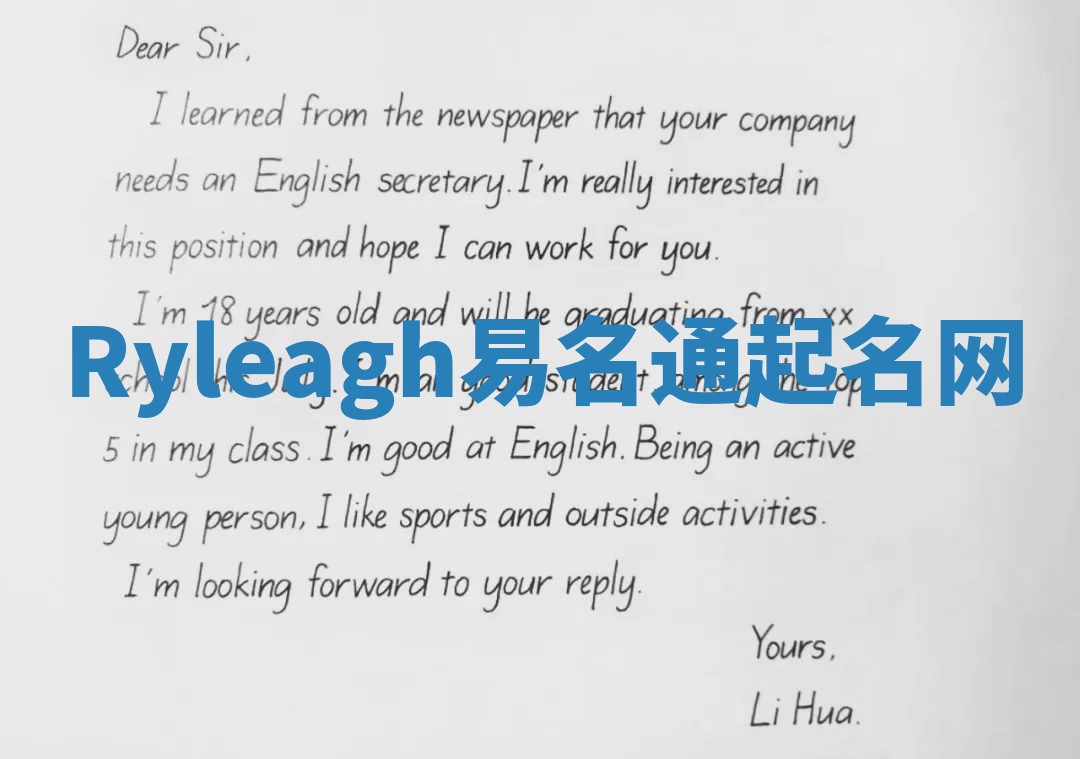 Dear Sir,
I learned from the newspaper that your company
needs an English secretary. I'm really interested in
this position and hope I can work for you.
I'm 18 years old and will be graduating from xx
Ryleagh易名通起名网
5 in my class. I'm good at English. Being an active
young person, I like sports and outside activities.
I'm looking forward to your reply.
Yours,
Li Hua.